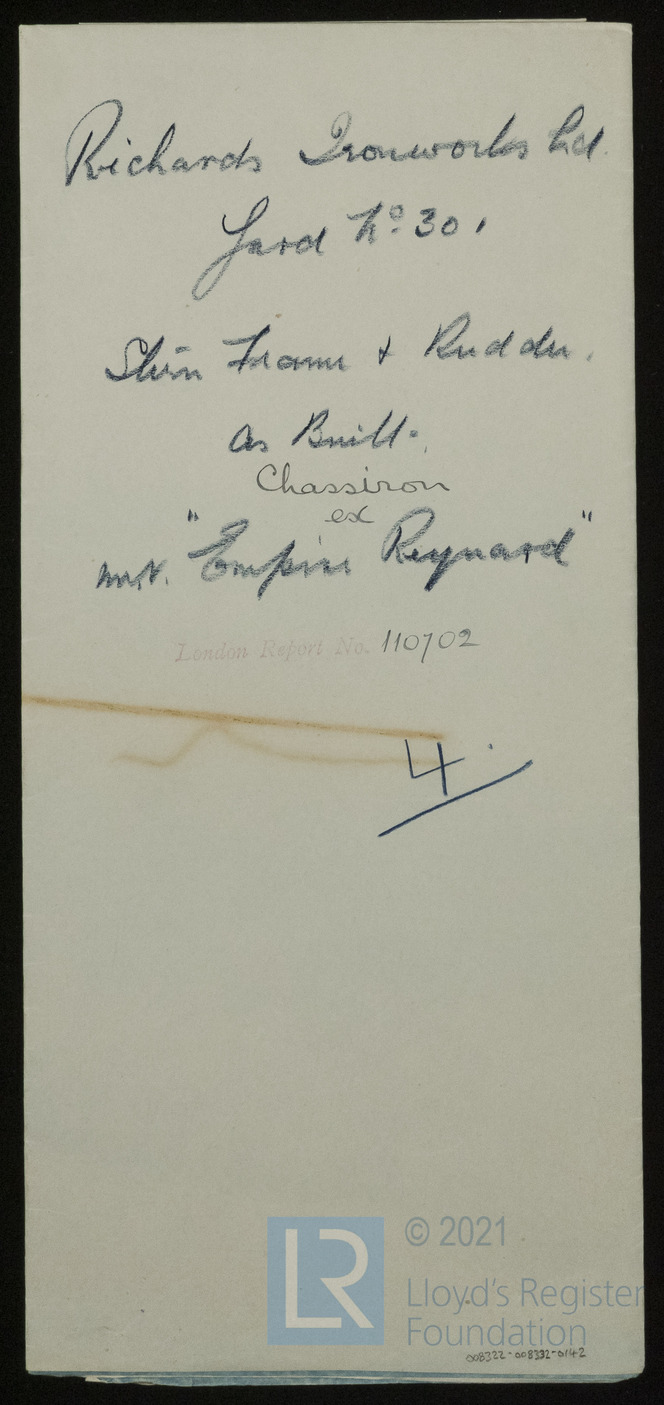 Richards Ironworks Ltd.
Yard No. 301
Stern Frame & Rudder.
As Built.
Chassiron
ex
m.v. "Empire Reynard"
London Report No. 110702
4.
LR
© 2021
Lloyd's Register
Foundation
008322-008332-0142